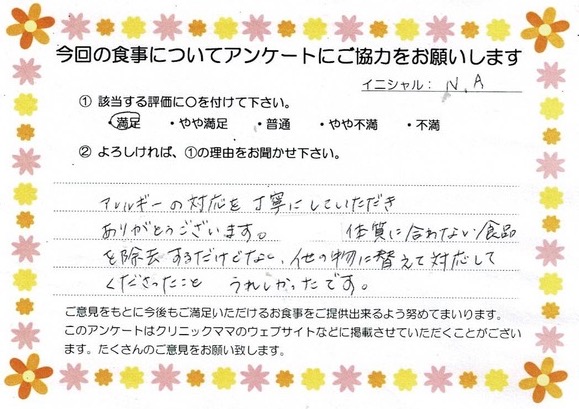 今回の食事についてアンケートにご協力をお願いします
イニシャル： N.A
① 該当する評価に○を付けて下さい。
・満足 ・やや満足 ・普通 ・やや不満 ・不満
② よろしければ、①の理由をお聞かせ下さい。
アレルギーの対応を丁寧にしていただき
ありがとうございます。 体質に合わない食品
を除去するだけでなく、他の物に替えて対応して
くださったこと うれしかったです。
ご意見をもとに今後もご満足いただけるお食事をご提供出来るよう努めてまいります。
このアンケートはクリニックママのウェブサイトなどに掲載させていただくことがござい
ます。たくさんのご意見をお願い致します。